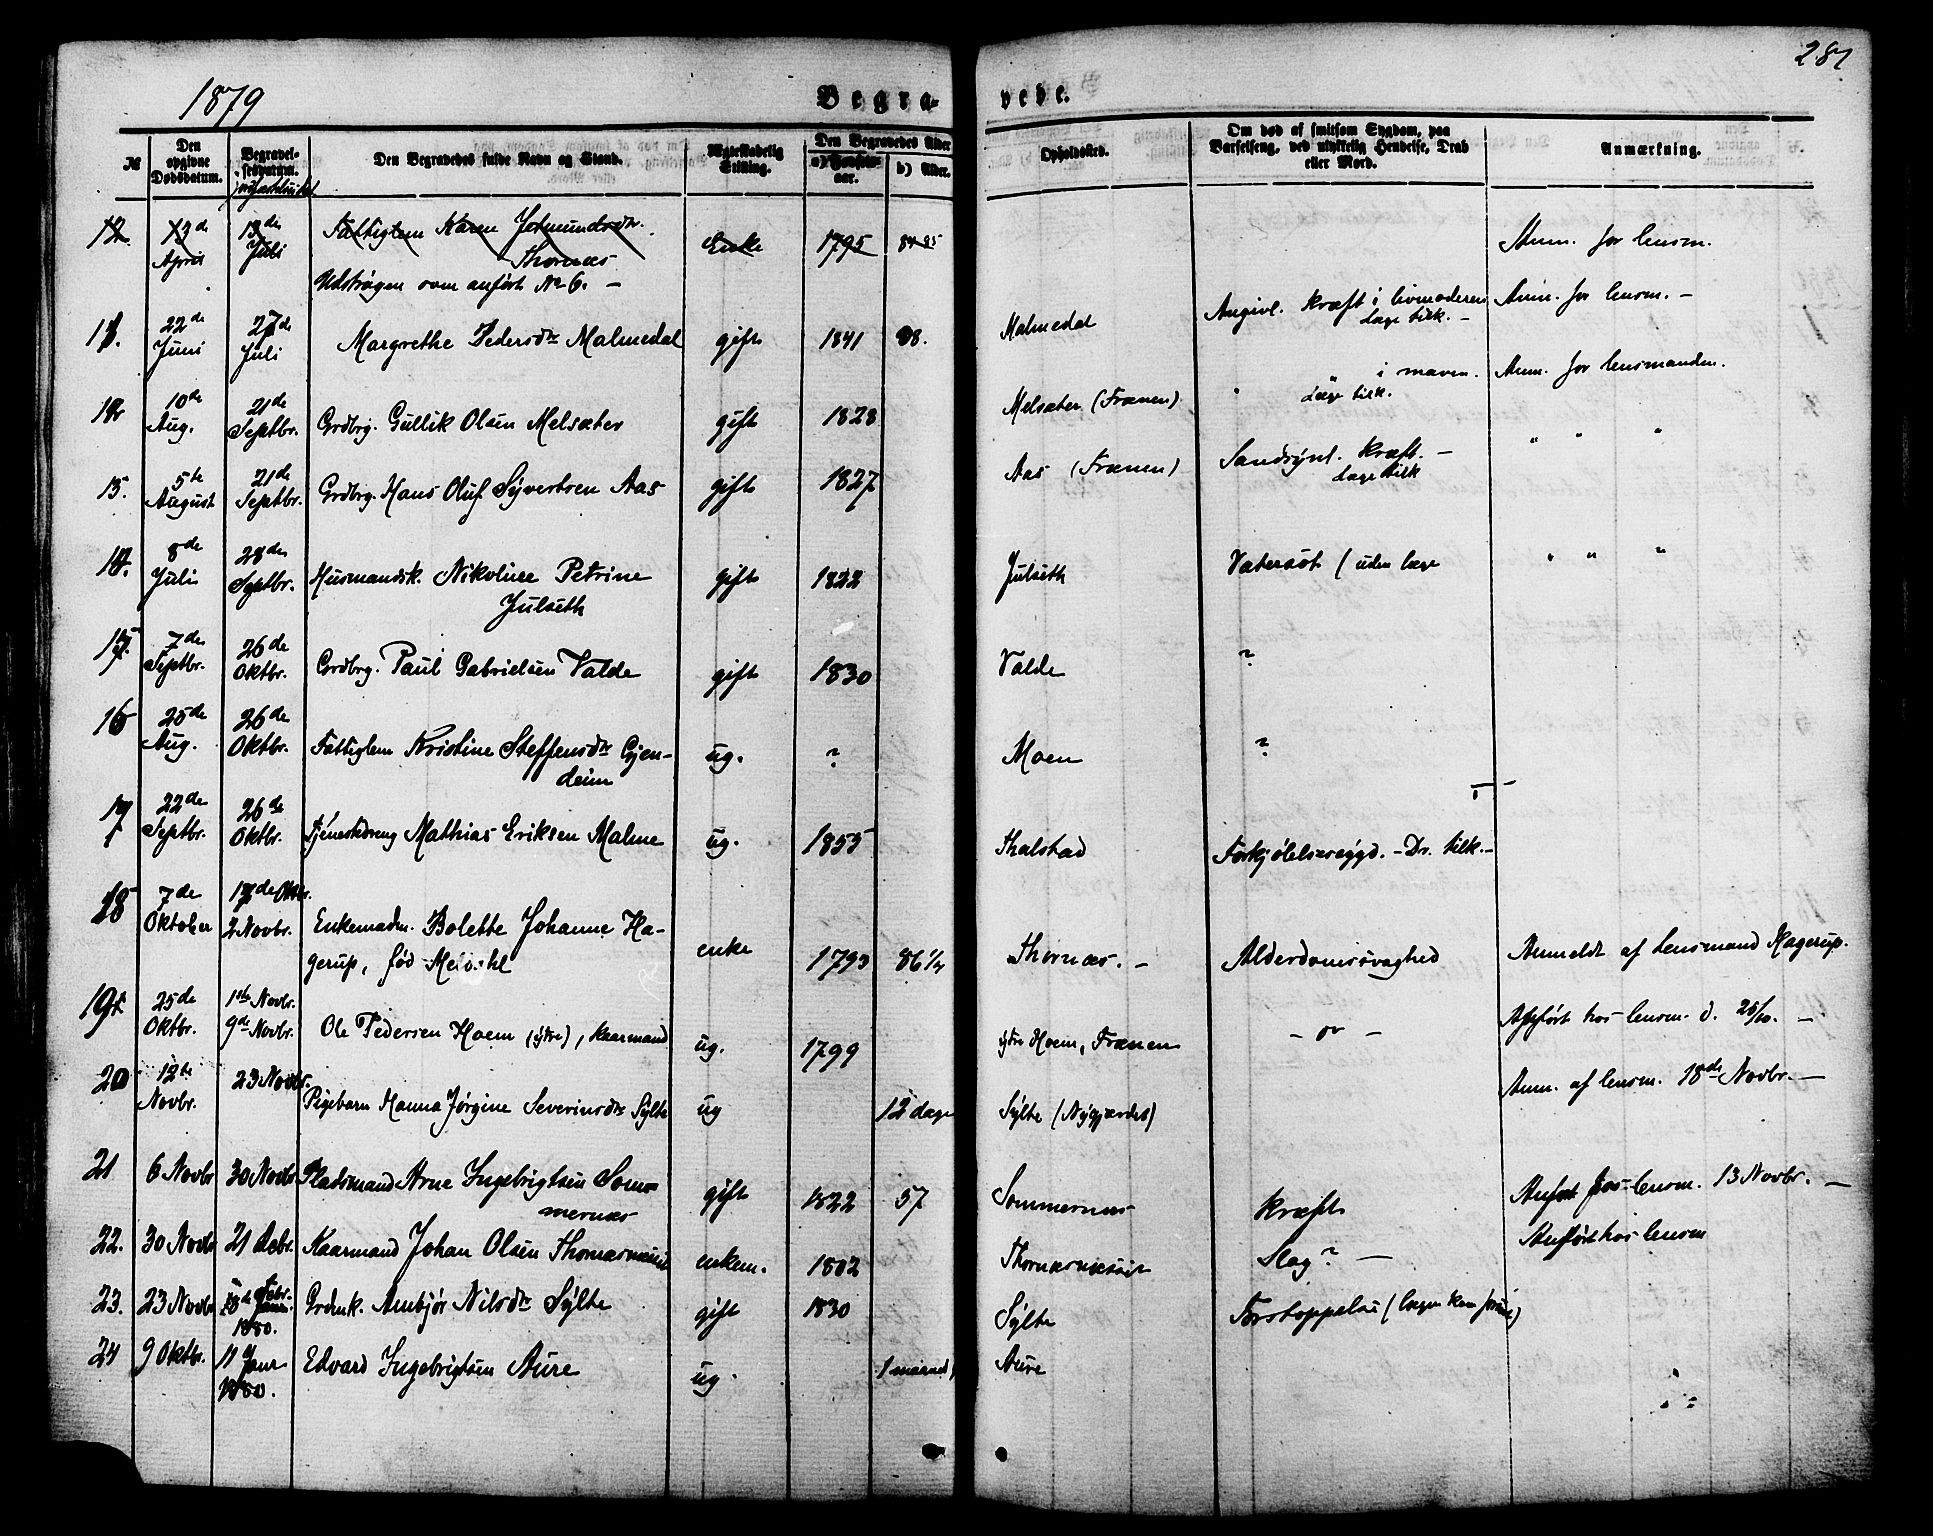 287
1879
Begra-
vede.
№
Den opgivne Dødsdatum.
Begravelsesdatum.
Den Begravedes fulde Navn og Stand.
Ægteskabelig Stilling.
Den Begravedes Alder
a) Fødselsaar.
b) Alder.
Opholdssted.
Om død af smitsom Sygdom, paa Barselseng, ved ulykkelig Hendelse, Drab eller Mord.
Anmærkning.
12. 13de April 13de Juli Fattiglem Karen Jetmundsdtr. Thornæs Enke 1795 84-85 Anm. for lensm.
Udstrøgen som anført No 6. –
22de Juni 27de Juli Margrethe Pedersdtr Malmedal gift 1841 38. Malmedal Angivl. kræft i livmoderen læge tilk. – Anm. for lensm. –
10de Aug. 21de Septbr. Grdbrg. Gullik Olsen Melsæter gift 1828 Melsæter (Frænen) " " i maven. Læge tilk. Anm. for lensmanden.
5te August 21de Septbr. Grdbrg. Hans Oluf Syvertsen Aas gift 1827 Aas (Frænen) Sandsynl. kræft. – læge tilk " " "
8de Juli 28de Septbr. Husmandsk. Nikoline Petrine Julseth gift 1822 Julseth Vatersot (uden læge " " "
15 7de Septbr. 26de Oktbr. Grdbrg. Paul Gabrielsen Valde gift 1830 Valde ?
16 25de Aug. 26de Oktbr. Fattiglem Kristine Steffensdtr Gjendeim ug. ? Moen ?
17 22de Septbr. 26de Oktbr. Tjenestedreng Mathias Eriksen Malme ug. 1855 Thalstad Forkjølelsessygd. – Dr. tilk. –
18 7de Oktober 17de Oktbr. 2 Novbr. Enkemadm. Bolette Johanne Hagerup, født enke 1793 86 1/4 Thornæs. – Alderdomssvaghed Anmeldt af Lensmand Hagerup.
19 25de Oktbr. 1ste Novbr. 9de Novbr. Ole Pedersen Hoem (ytre), kaarmand ug. 1799 ytre Hoem, Frænen – or – Anført hos lensm. d. 28/10. –
20 12te Novbr. 23 Novbr. Pigebarn Hanna Jørgine Severinsdtr Sylte ug 12 dage Sylte (Nygjærdet) Anm. af lensm. 18de Novbr. –
21 6 Novbr 30 Novbr Pladsmand Arne Ingebrigtsen Sommernæs gift 1822 57 Sommernæs kræft Anført hos lensm. 13 Novbr. –
22. 30 Novbr 21 Decbr. Kaarmand Johan Olsen enkem. 1802 Slag? – Anført hos lensm
23. 23 Novbr Febr. 1880. Grdmk. Ambjør Nilsdtr Sylte gift 1830 Sylte Forstoppelse
24 9 Oktbr. 11 Janr 1880. Edvard Ingebrigtsen Aure ug. 1 maaned Aure